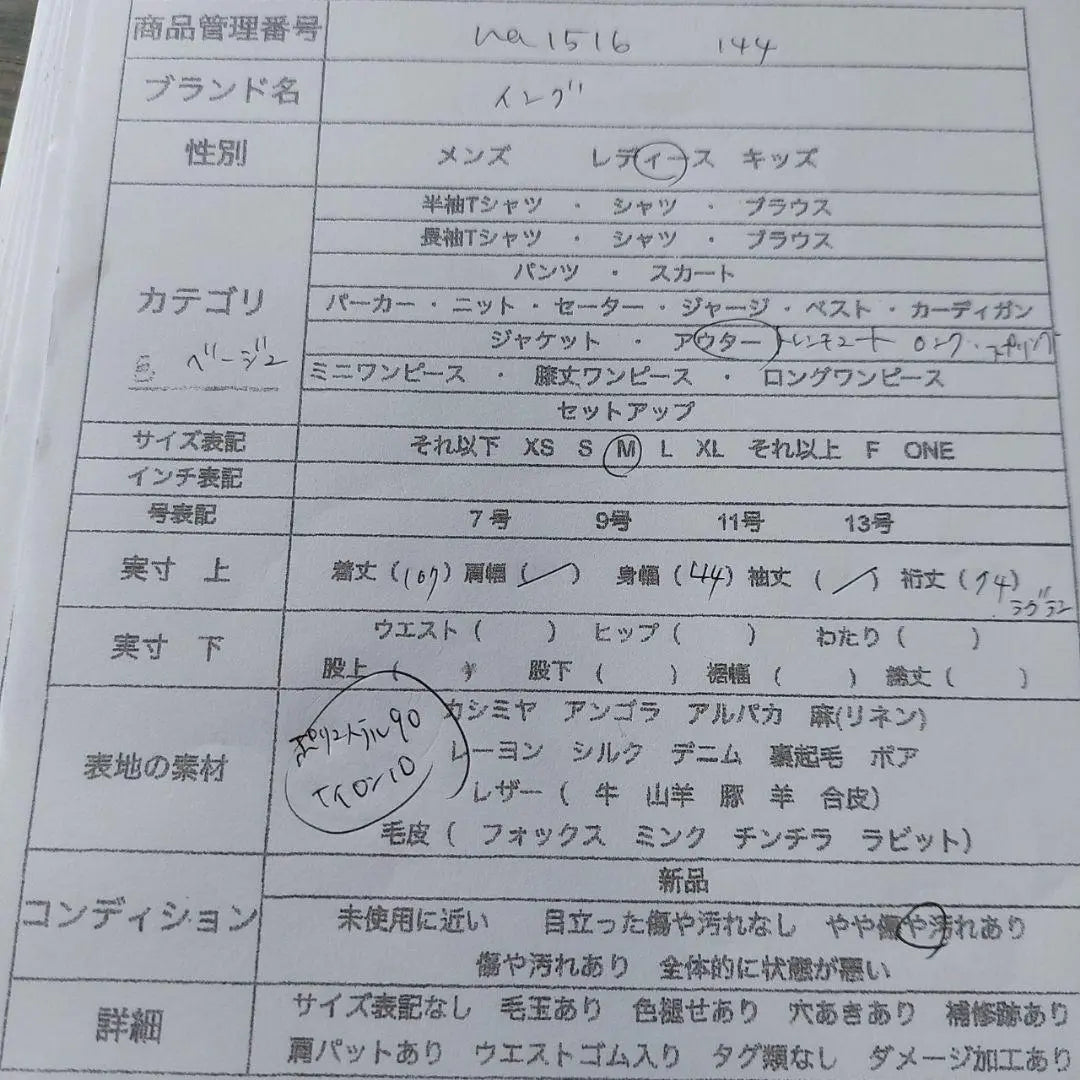 商品管理番号 na1516 144
ブランド名 イング
性別 メンズ レディース キッズ
半袖Tシャツ ・ シャツ ・ ブラウス
長袖Tシャツ ・ シャツ ・ ブラウス
パンツ ・ スカート
カテゴリ パーカー ・ ニット ・ セーター ・ ジャージ ・ ベスト ・ カーディガン
ジャケット ・ アウター トレンチコート ロング・スプリング
色 ベージュ
ミニワンピース ・ 膝丈ワンピース ・ ロングワンピース
セットアップ
サイズ表記 それ以下 XS S M L XL それ以上 F ONE
インチ表記
号表記 7号 9号 11号 13号
実寸 上 着丈(107) 肩幅(／) 身幅(44) 袖丈(／) 裄丈(74)
ラグラン
実寸 下 ウエスト( ) ヒップ( ) わたり( )
股上( ) 股下( ) 裾幅( ) 総丈( )
表地の素材 カシミヤ アンゴラ アルパカ 麻(リネン)
ポリエステル90
ナイロン10
レーヨン シルク デニム 裏起毛 ボア
レザー( 牛 山羊 豚 羊 合皮)
毛皮( フォックス ミンク チンチラ ラビット)
コンディション 新品
未使用に近い 目立った傷や汚れなし やや傷や汚れあり
傷や汚れあり 全体的に状態が悪い
詳細 サイズ表記なし 毛玉あり 色褪せあり 穴あきあり 補修跡あり
肩パットあり ウエストゴム入り タグ類なし ダメージ加工あり